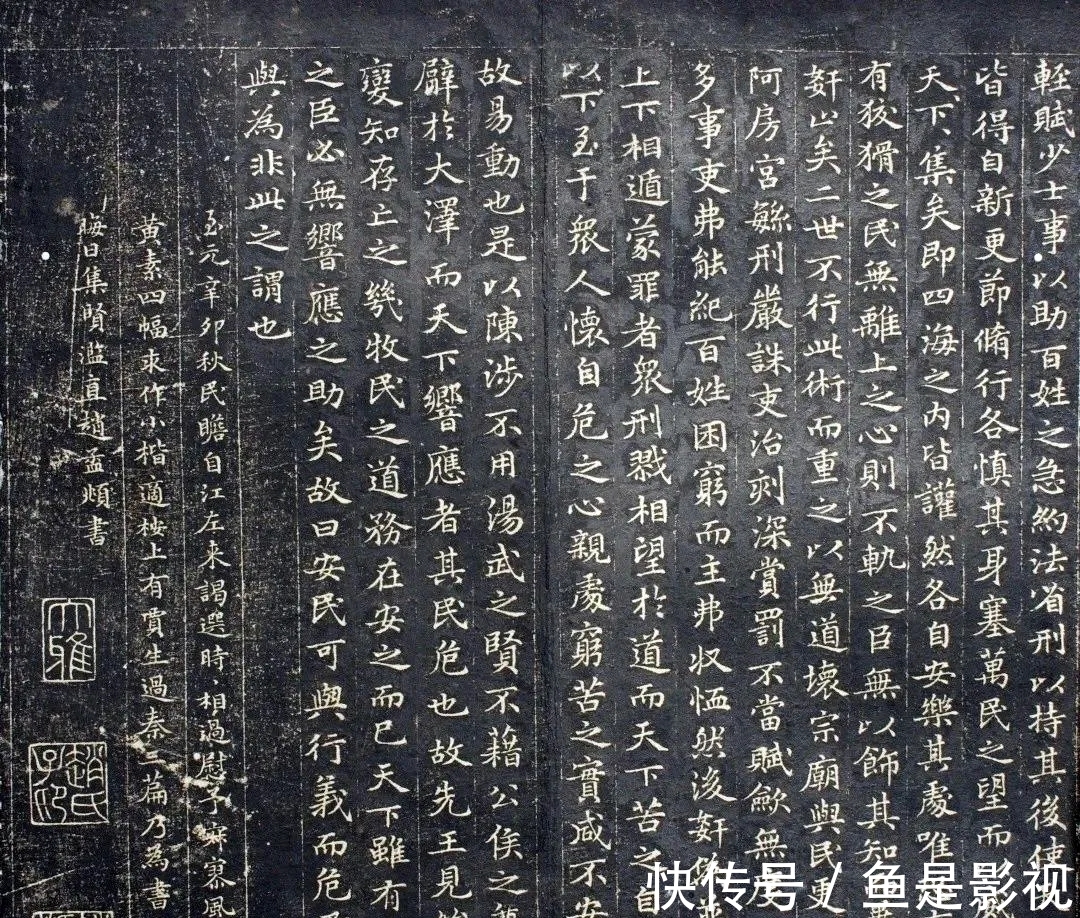 輕賦少士事以助百姓之急約法省刑以持其後使天
皆得自新更節脩行各慎其身塞萬民之望而以
天下集矣即四海之內皆讙然各自安樂其處唯恐
有狡猾之民無離上之心則不軌之臣無以飾其知
姧止矣二世不行此術而重之以無道壞宗廟與民更
阿房宮繇刑嚴誅吏治刻深賞罰不當賦歛無度
多事吏弗能紀百姓困窮而主弗収恤然後姧偽並
上下相遁蒙罪者衆刑戮相望於道而天下苦之自
以下至于衆人懷自危之心親處窮苦之實咸不安
故易動也是以陳涉不用湯武之賢不藉公侯之尊
臂於大澤而天下響應者其民危也故先王見始
變知存亡之幾牧民之道務在安之而已天下雖有
之臣必無響應之助矣故曰安民可與行義而危
與為非此之謂也
至元辛卯秋民瞻自江左来謁選時相過慰予寂寥風
黃素四幅求作小楷適桉上有賈生過秦三篇乃為書
晦日集賢濫直趙孟頫書
大雅
趙氏子印
快传号 / 鱼是影视